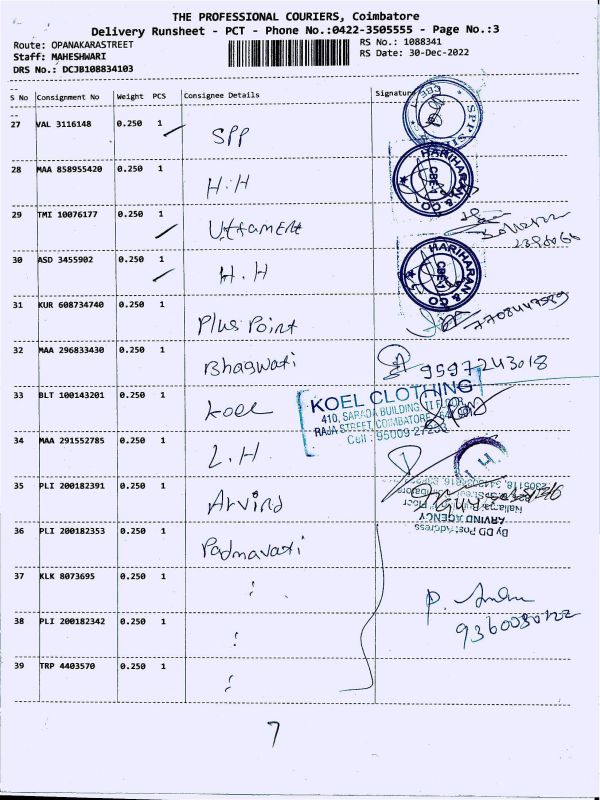 THE PROFESSIONAL COURIERS, Coimbatore
Delivery Runsheet - PCT - Phone No.:0422-3505555 - Page No.:3
Route: OPANAKARASTREET RS No.: 1088341
Staff: MAHESHWARI RS Date: 30-Dec-2022
DRS No.: DCJB108834103
S No Consignment No Weight PCS Consignee Details Signature
27 VAL 3116148 0.250 1 SPP
28 MAA 858955420 0.250 1 H.H
HARIHARAN & CO
CBE-1
29 TMI 10076177 0.250 1 Uttament
30 ASD 3455902 0.250 1 H.H
HARIHARAN & CO
CBE-1
31 KUR 608734740 0.250 1 Plus Point
32 MAA 296833430 0.250 1 Bhagwati 9597243018
33 BLT 100143201 0.250 1 Koel
KOEL CLOTHING
410, SARADA BUILDING, II FLOOR
RAJA STREET, COIMBATORE
Cell : 95009 27233
34 MAA 291552785 0.250 1 L.H
35 PLI 200182391 0.250 1 Arvind
ARVIND AGENCY
36 PLI 200182353 0.250 1 Padmavati
37 KLK 8073695 0.250 1 "
38 PLI 200182342 0.250 1 "
39 TRP 4403570 0.250 1 "
7